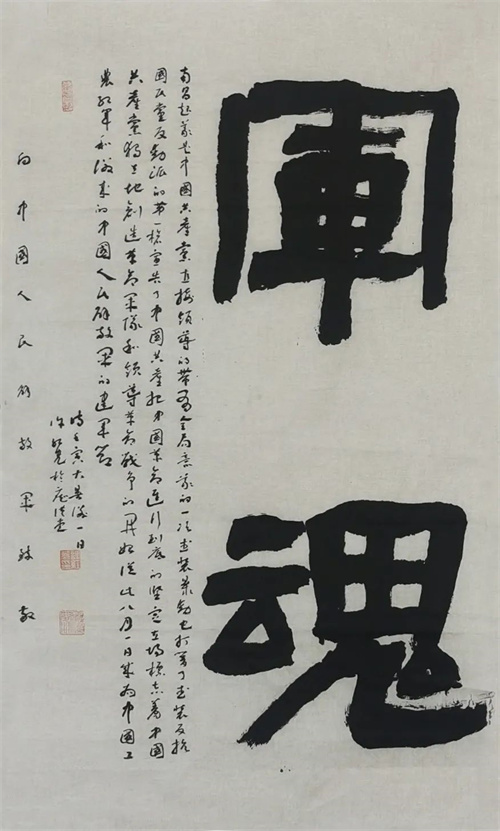 軍魂
南昌起義是中國共產黨直接领導的帶有全局意義的一次武裝暴動它打響了武裝反抗
國民黨反動派的第一槍宣告了中國共產把中國革命進行到底的堅定立場標志着中國
共產黨獨立地創造革命軍隊和领導革命戰争的開始從此八月一日成為中國工
農紅軍和後來的中國人民解放軍的建軍節
時壬寅大暑後一日
向中國人民解放軍致敬